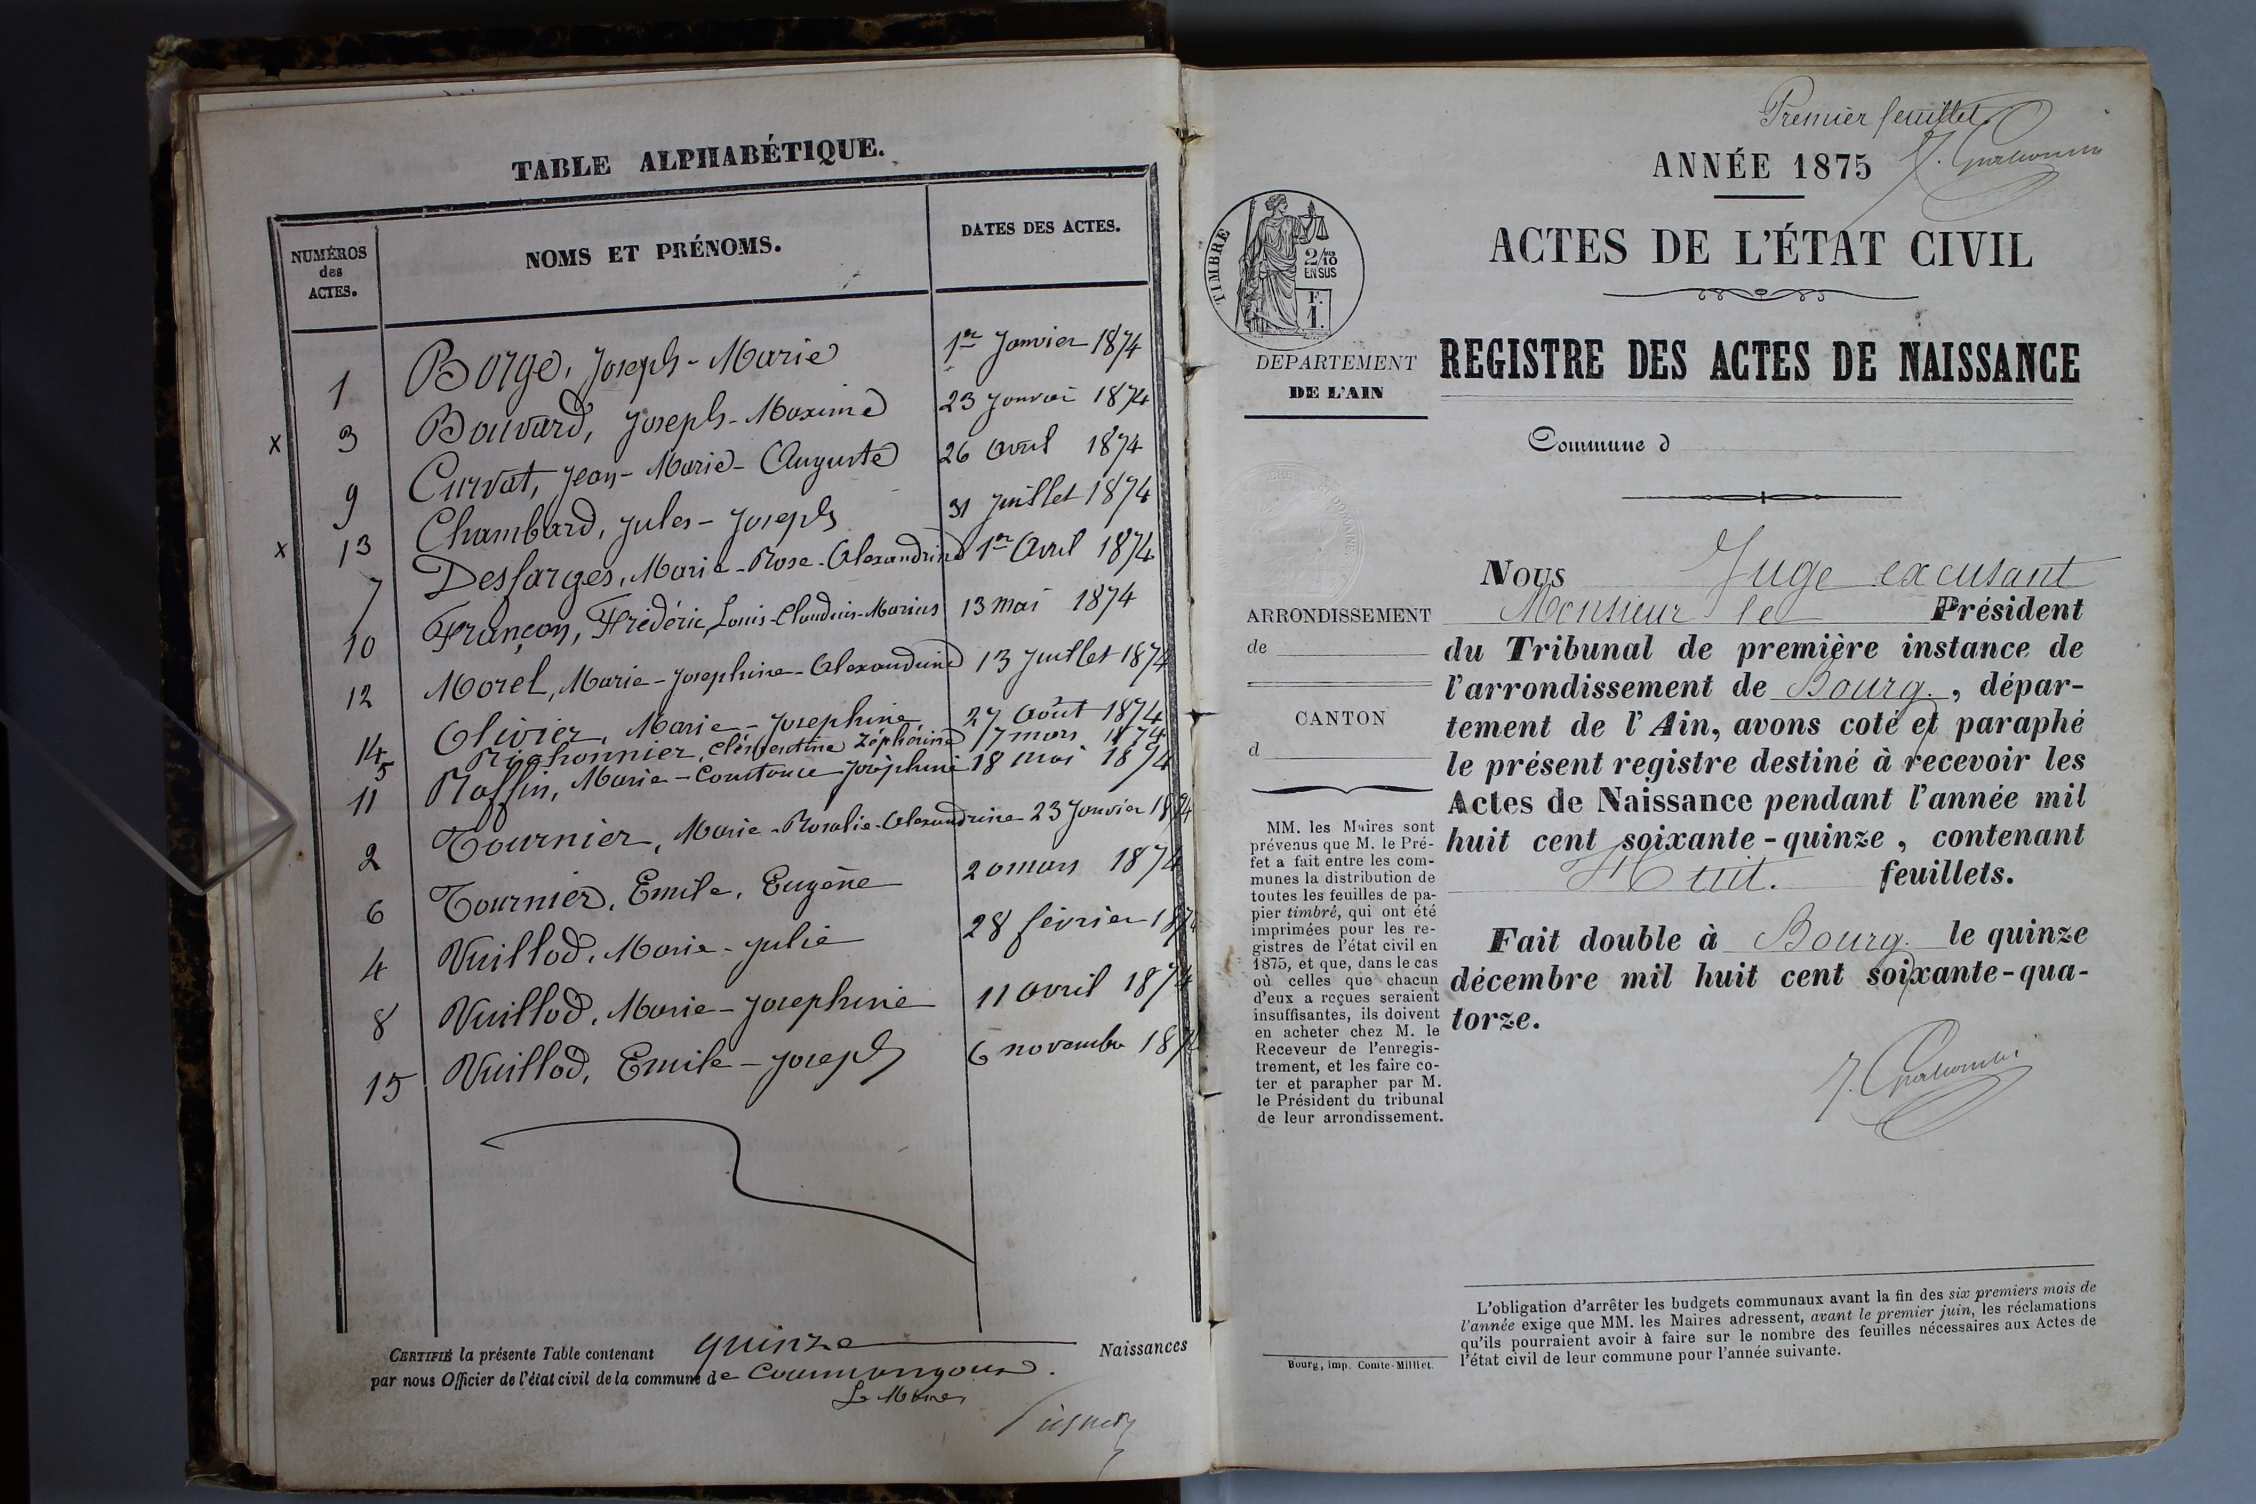 TABLE ALPHABÉTIQUE.
NUMÉROS
des
ACTES.
NOMS ET PRÉNOMS.
DATES DES ACTES.
1 Borge, Joseph-Marie 1er Janvier 1874
x 3 Bouvard, Joseph-Maxime 23 Janvier 1874
9 Curvat, Jean-Marie-Auguste 26 avril 1874
x 13 Chambard, Jules-Joseph 31 Juillet 1874
7 Desfarges, Marie-Rose-Alexandrine 1er Avril 1874
10 Françon, Frédéric Louis-Claudius-Marius 13 mai 1874
12 Morel, Marie-Josephine-Alexandrine 13 Juillet 1874
14 Olivier, Marie-Josephine 27 Août 1874
5 Richonnier, Clémentine Zéphérine 17 mars 1874
11 Roffin, Marie-Constance Joséphine 18 mai 1874
2 Tournier, Marie-Rosalie-Alexandrine 23 Janvier 1874
6 Tournier, Emile, Eugène 20 mars 1874
4 Vuillod, Marie-Julie 28 février 1874
8 Vuillod, Marie-Josephine 11 avril 1874
15 Vuillod, Emile-Joseph 6 novembre 1874
CERTIFIÉ la présente Table contenant quinze Naissances
par nous Officier de l'état civil de la commune de Courmangoux.
Le Maire
Premier feuillet
ANNÉE 1875
ACTES DE L'ÉTAT CIVIL
TIMBRE
2/10
EN SUS
F.
1.
DEPARTEMENT
DE L'AIN
REGISTRE DES ACTES DE NAISSANCE
Commune d
ARRONDISSEMENT
de
CANTON
d
MM. les Maires sont
prévenus que M. le Pré-
fet a fait entre les com-
munes la distribution de
toutes les feuilles de pa-
pier timbré, qui ont été
imprimées pour les re-
gistres de l'état civil en
1875, et que, dans le cas
où celles que chacun
d'eux a reçues seraient
insuffisantes, ils doivent
en acheter chez M. le
Receveur de l'enregis-
trement, et les faire co-
ter et parapher par M.
le Président du tribunal
de leur arrondissement.
Nous Juge excusant
Monsieur le Président
du Tribunal de première instance de
l'arrondissement de Bourg, dépar-
tement de l'Ain, avons coté et paraphé
le présent registre destiné à recevoir les
Actes de Naissance pendant l'année mil
huit cent soixante-quinze, contenant
Huit. feuillets.
Fait double à Bourg. le quinze
décembre mil huit cent soixante-qua-
torze.
L'obligation d'arrêter les budgets communaux avant la fin des six premiers mois de
l'année exige que MM. les Maires adressent, avant le premier juin, les réclamations
qu'ils pourraient avoir à faire sur le nombre des feuilles nécessaires aux Actes de
l'état civil de leur commune pour l'année suivante.
Bourg, imp. Comte-Milliet.